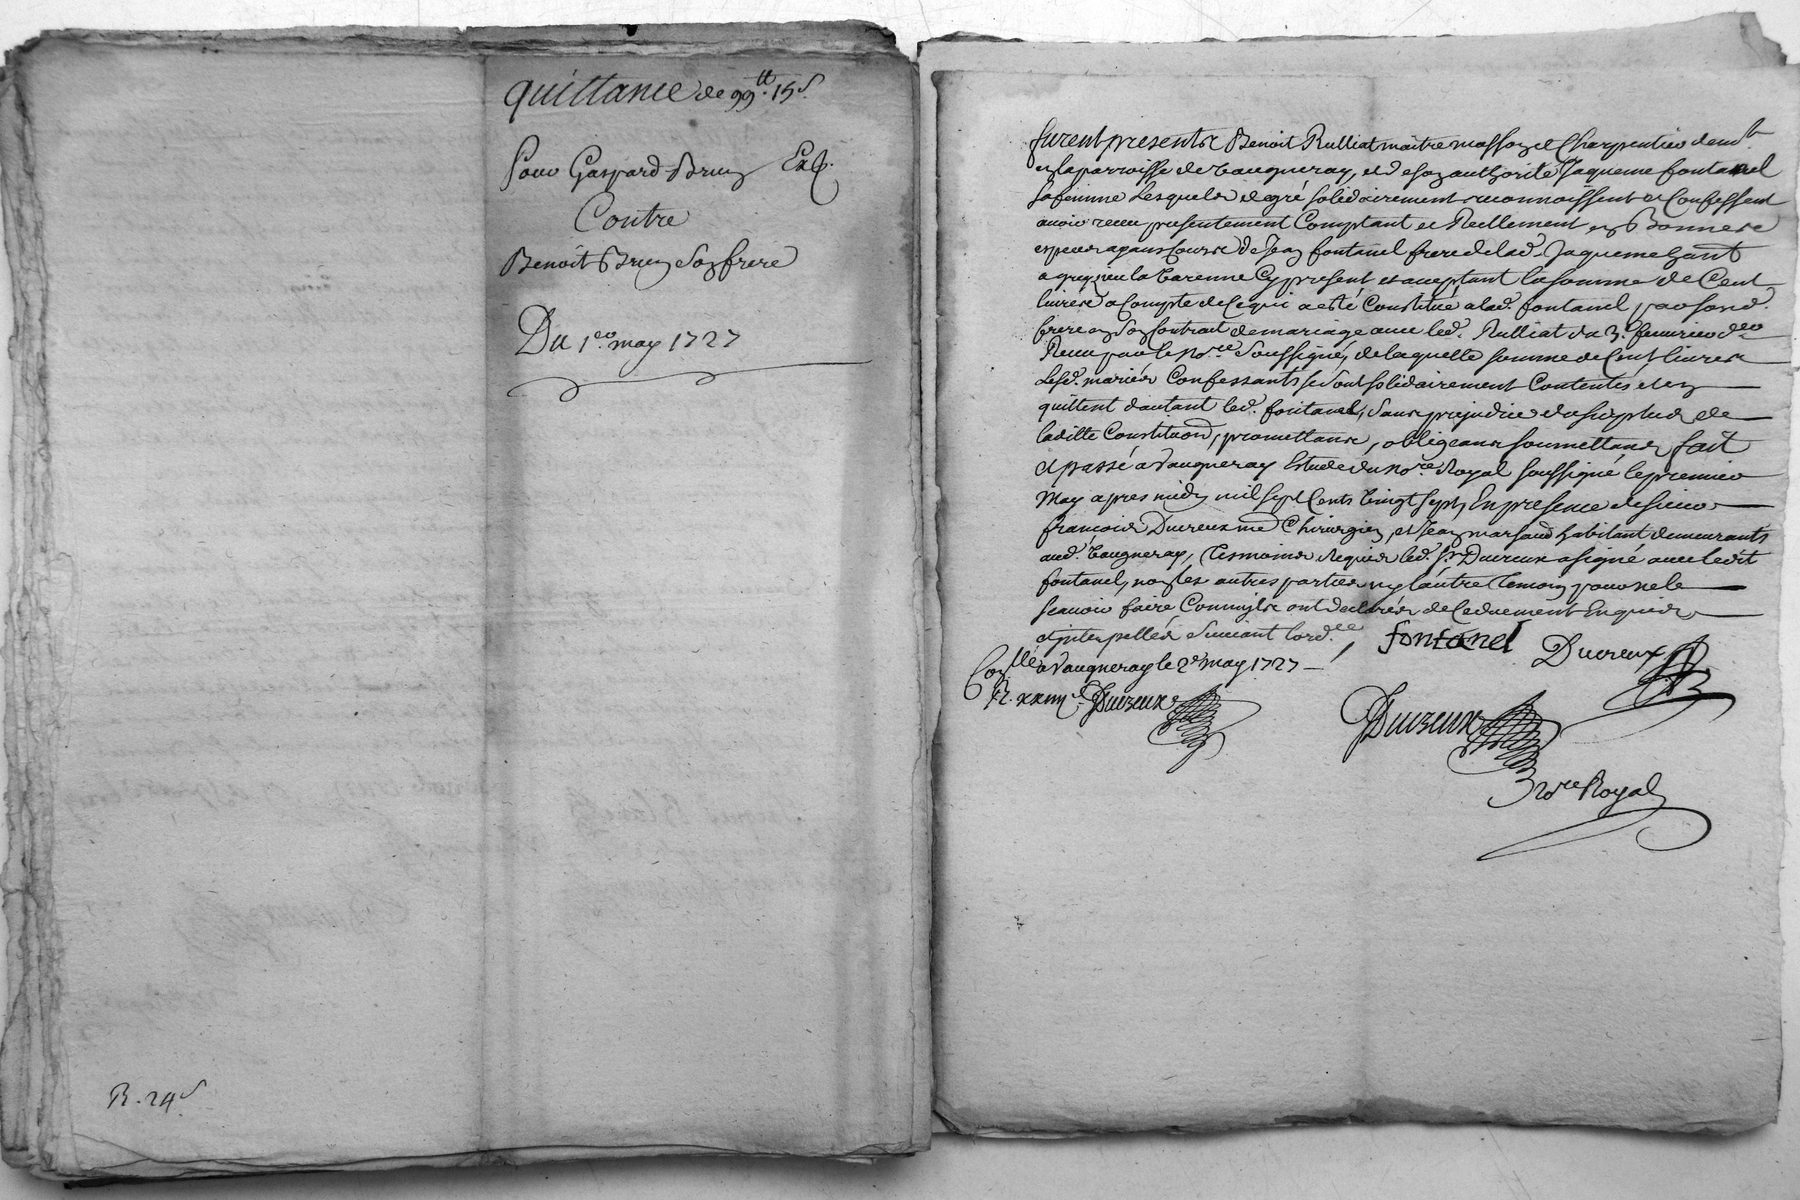 quittance de 99.tt 15.s
Pour Gaspard Brun Exp.
Contre
Benoit Brun son frere
Du 1.er may 1727
R. 24.s
furent presents Benoit Rulliat maitre masson et Charpentier dem.t
en la parroisse de Vaugneray, et de son authorité Jaqueme fontanel
sa femme Lesquels de gré solidairement reconnoissent et Confessent
avoir receu presentement Comptant et Reellement en Bonnes
especes ayans Cours de Jean fontanel frere de lad. Jaqueme hant
a grezieu la Varenne Cy present et acceptant la somme de Cent
livres a Compte de Ce qui a esté Constitué a lad. fontanel par sond.
frere en son Contrait de mariage avec led. Rulliat du 3.e fevrier d.er
Receu par le no.re soussigné, de laquelle somme de Cent livres
Lesd. mariés Confessants se sont solidairement Contentés et en
quittent d'autant led. fontanel, sans prejudice du surplus de
laditte Constituon, promettans, obligeans soumettans fait
et passé a Vaugneray Estude du no.re Royal soussigné le premier
May apres midy mil sept Cents Vingt sept, En presence de sieur
françois Ducreux me Chirurgien, et Jean marsaud habitant demeurants
aud. Vaugneray, Tesmoins requis led. s.r Ducreux a signé avec ledit
fontanel, non les autres parties ny l'autre Temoin pour ne le
scavoir faire Comm'ils ont declarés de Ce duement Enquis
et interpellés suivant lord.ce
fontanel Ducreux
Con.llé a Vaugneray le 2.e may 1727
R. xxiiii s. Ducreux
Ducreux
No.re Royal